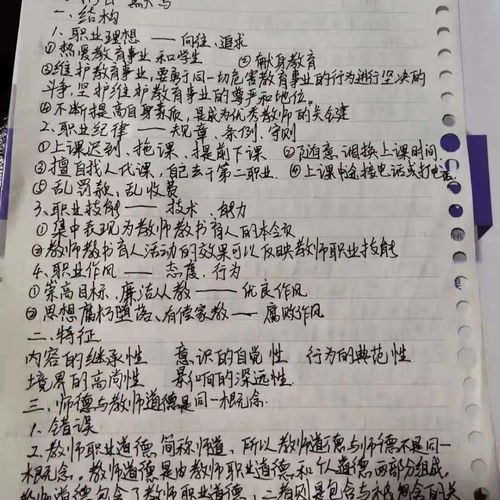 一、结构
1、职业理想 —— 向往、追求
①热爱教育事业和学生 ②献身教育
③维护教育事业,要勇于同一切危害教育事业的行为进行坚决的
斗争,坚护维护教育事业的尊严和地位。
④不断提高自身素质,是成为优秀教师的关键
2、职业纪律 —— 规章、条例、守则
①上课迟到、拖课、提前下课 ②随意调换上课时间
③擅自找人代课,自己去干第二职业. ④上课中途接电话或打电话
⑤乱罚款、乱收费
3、职业技能 —— 技术、能力
①集中表现为教师教书育人的本领
②教师教书育人活动的效果可以反映教师职业技能
4、职业作风 —— 态度、行为
①崇高目标、廉洁从教 —— 优良作风
②思想腐朽堕落、有偿家教 —— 腐败作风
二、特征
内容的继承性 意识的自觉性 行为的典范性
境界的高尚性 影响的深远性
三、师德与教师道德是同一概念
1、错误
2、教师职业道德,简称师道,所以教师道德与师德不是同一
概念。教师道德是由教师职业道德和个人道德两部分组成
教师道德包含了教师职业道德,二者则是包含与被包含的关